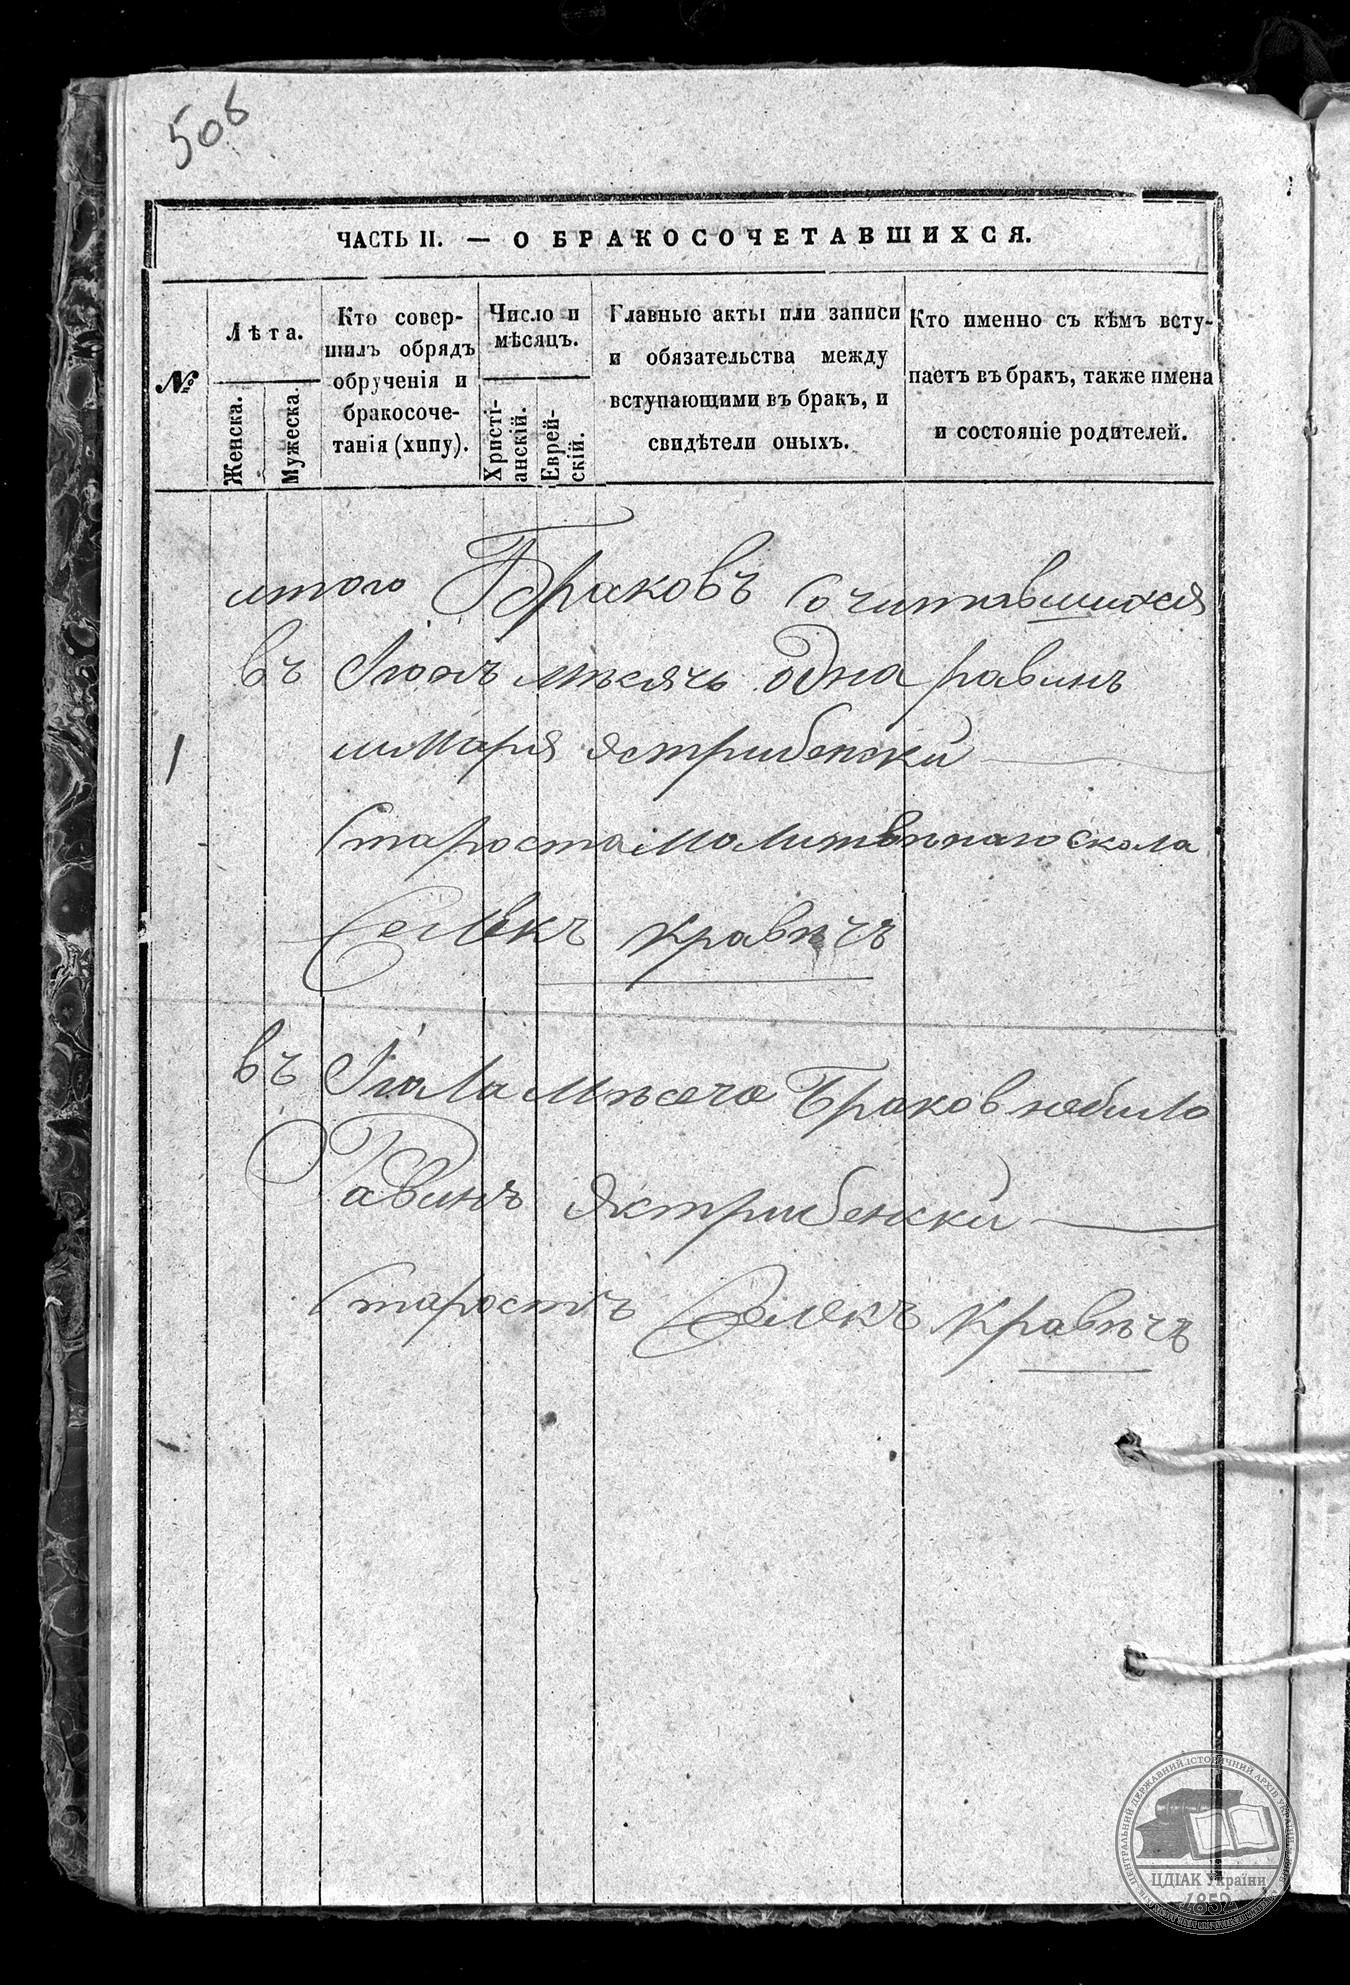 508
ЧАСТЬ II. — О БРАКОСОЧЕТАВШИХСЯ.
№
Лѣта.
Женска.
Мужеска.
Кто совер-
шилъ обрядъ
обрученія и
бракосоче-
танія (хипу).
Число и
мѣсяцъ.
Христі-
анскій.
Еврей-
скій.
Главные акты или записи
и обязательства между
вступающими въ бракъ, и
свидѣтели оныхъ.
Кто именно съ кѣмъ всту-
паетъ въ бракъ, также имена
и состояніе родителей.
итого Браковъ Сочитавшихся
въ Июнъ мѣсячь одна равинъ
1
шмаря Ястрибенски
Староста молитвеннаго скола
Селекъ Кравѣчъ
въ Июла мѣсеча Браков небило
Равинъ Ястрибенски
Старостъ Селекъ Кравѣчъ
ЦЕНТРАЛЬНИЙ ДЕРЖАВНИЙ ІСТОРИЧНИЙ АРХІВ УКРАЇНИ
ЦДІАК України
1852